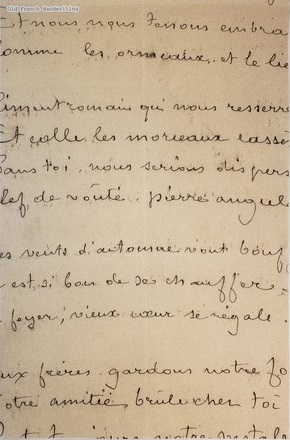 Old French Handwriting
Et nous nous tenons embra
comme les ormeaux, et le lie
ciment romain qui nous resserre
Et colle les morceaux cassé
Sans toi, nous serions dispers
clef de voûte, pierre angula
es vents d'automne vont bouf
est si bon de se chauffer,
foyer, vieux cœur se régale.
ux frères gardons notre fo
otre amitié brûle chez toi